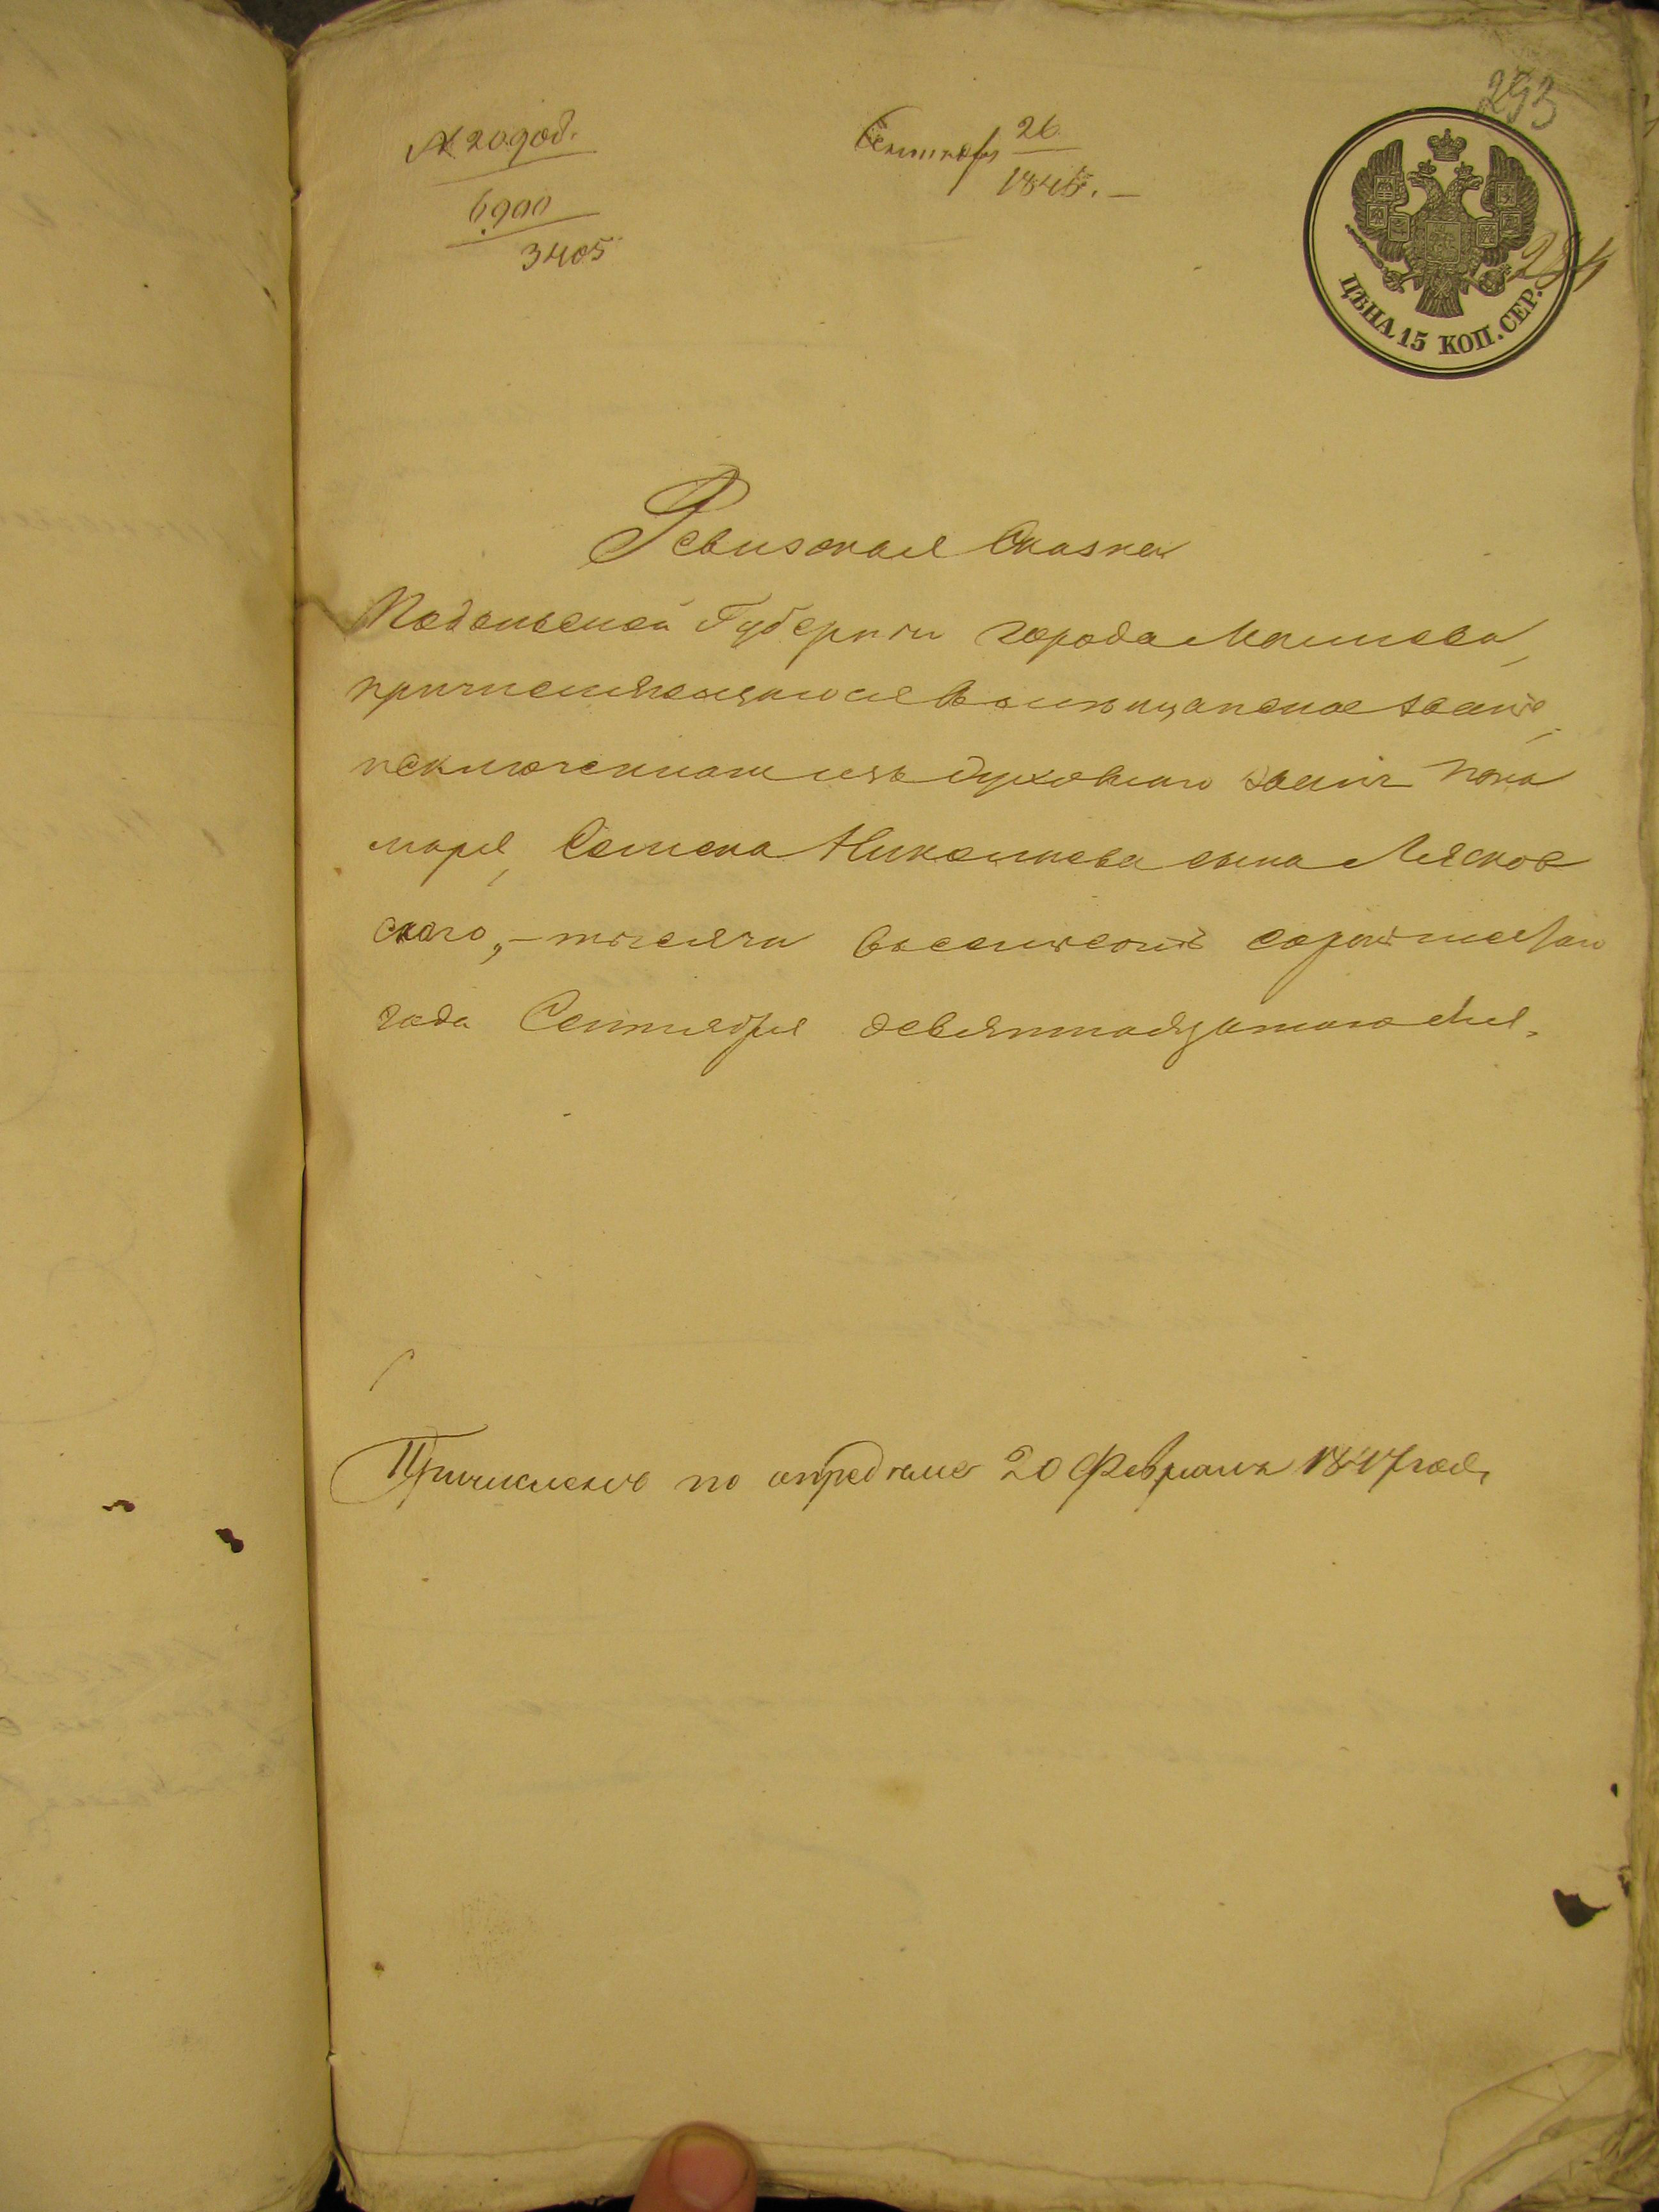 293
№ 209 од.
Сентября 26
1846. —
6900
3405
ЦѢНА 15 КОП. СЕР.
Ревизская Сказка
Подольской Губерніи города
причисляющагося въ мѣщанское званіе
исключеннаго изъ духовнаго званія поно
маря, Семена Николаева сына Лясков
ского, — тысяча восемьсотъ сорокъ шестаго
года Сентября девятнадцатого дня.
Причисленъ по опредѣленію 20 Февраля 1847 года